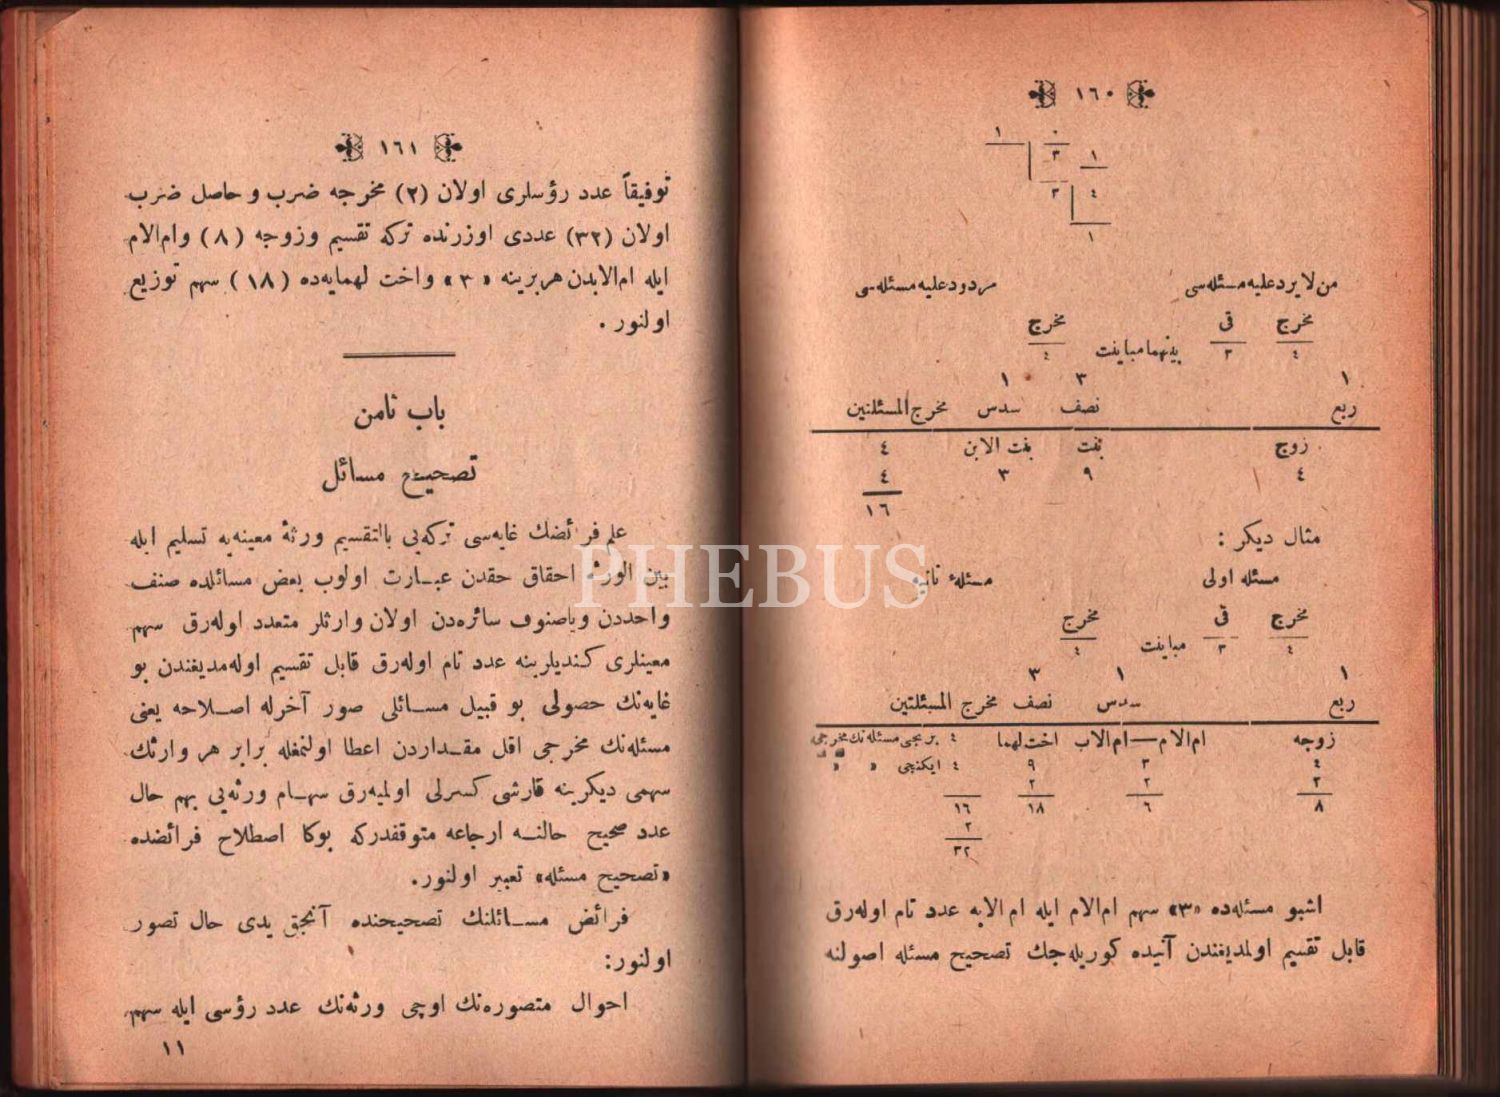 ١٦٠
١ ٠
٣ ١
٣ ٤
١
من لايرد عليه مسئله‌سی مردود عليه مسئله‌سی
مخرج قی مخرج
٤ ٣ بينهما مباينت ٤
١ ٣ ١
ربع نصف سدس مخرج المسئلتين
زوج بنت بنت الابن ٤
٤ ٩ ٣ ٤
١٦
مثال ديكر :
مسئله اولی مسئلهٔ ثانيه
مخرج قی مخرج
٤ ٣ مباينت ٤
١ ١ ٣
ربع سدس نصف مخرج المسئلتين
زوجه ام‌الام — ام‌الاب اخت لهما ٤ برنجی مسئله‌نك مخرجی
٤ ٣ ٩ ٤ ايكنجی » »
٢ ٢ ٢
٨ ٦ ١٨ ١٦
٢
٣٢
اشبو مسئله‌ده «٣» سهم ام‌الام ايله ام‌الابه عدد تام اوله‌رق
قابل تقسيم اولمديغندن آتيده كوريله‌جك تصحيح مسئله اصولنه
١٦١
توفيقاً عدد رؤسلری اولان (٢) مخرجه ضرب و حاصل ضرب
اولان (٣٢) عددی اوزرنده تركه تقسيم وزوجه (٨) وام‌الام
ايله ام‌الابدن هربرينه «٣» واخت لهمايه‌ده (١٨) سهم توزيع
اولنور .
باب ثامن
تصحيح مسائل
علم فرائضك غايه‌سی تركه‌يی بالتقسيم ورثهٔ معينه‌يه تسليم ايله
بين الورثه احقاق حقدن عبارت اولوب بعض مسائلده صنف
واحددن وياصنوف سائره‌دن اولان وارثلر متعدد اوله‌رق سهم
معينلری كنديلرينه عدد تام اوله‌رق قابل تقسيم اوله‌مديغندن بو
غايه‌نك حصولی بو قبيل مسائلی صور آخرله اصلاحه يعنی
مسئله‌نك مخرجی اقل مقداردن اعطا اولنمغله برابر هر وارثك
سهمی ديكرينه قارشی كسرلی اولميه‌رق سهام ورثه‌يی بهم حال
عدد صحيح حالنه ارجاعه متوقفدركه بوكا اصطلاح فرائضده
«تصحيح مسئله» تعبير اولنور.
فرائض مسائلنك تصحيحنده آنجق يدی حال تصور
اولنور:
احوال متصوره‌نك اوچی ورثه‌نك عدد رؤسی ايله سهم
١١
PHEBUS